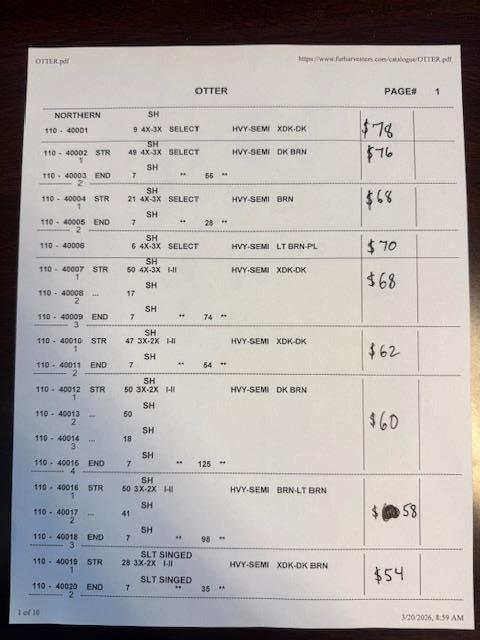 OTTER.pdf https://www.furharvesters.com/catalogue/OTTER.pdf
OTTER PAGE# 1
NORTHERN SH
110 - 40001 9 4X-3X SELECT HVY-SEMI XDK-DK $78
SH
110 - 40002 STR 49 4X-3X SELECT HVY-SEMI DK BRN $76
1
SH
110 - 40003 END 7 ** 56 **
2
SH
110 - 40004 STR 21 4X-3X SELECT HVY-SEMI BRN $68
1
SH
110 - 40005 END 7 ** 28 **
2
SH
110 - 40006 6 4X-3X SELECT HVY-SEMI LT BRN-PL $70
SH
110 - 40007 STR 50 4X-3X I-II HVY-SEMI XDK-DK $68
1
SH
110 - 40008 ... 17
2
SH
110 - 40009 END 7 ** 74 **
3
SH
110 - 40010 STR 47 3X-2X I-II HVY-SEMI XDK-DK $62
1
SH
110 - 40011 END 7 ** 54 **
2
SH
110 - 40012 STR 50 3X-2X I-II HVY-SEMI DK BRN
1
SH
110 - 40013 ... 50 $60
2
SH
110 - 40014 ... 18
3
SH
110 - 40015 END 7 ** 125 **
4
SH
110 - 40016 STR 50 3X-2X I-II HVY-SEMI BRN-LT BRN
1
SH
110 - 40017 ... 41 $ 58
2
SH
110 - 40018 END 7 ** 98 **
3
SLT SINGED
110 - 40019 STR 28 3X-2X I-II HVY-SEMI XDK-DK BRN $54
1
SLT SINGED
110 - 40020 END 7 ** 35 **
2
1 of 10 3/20/2026, 8:59 AM